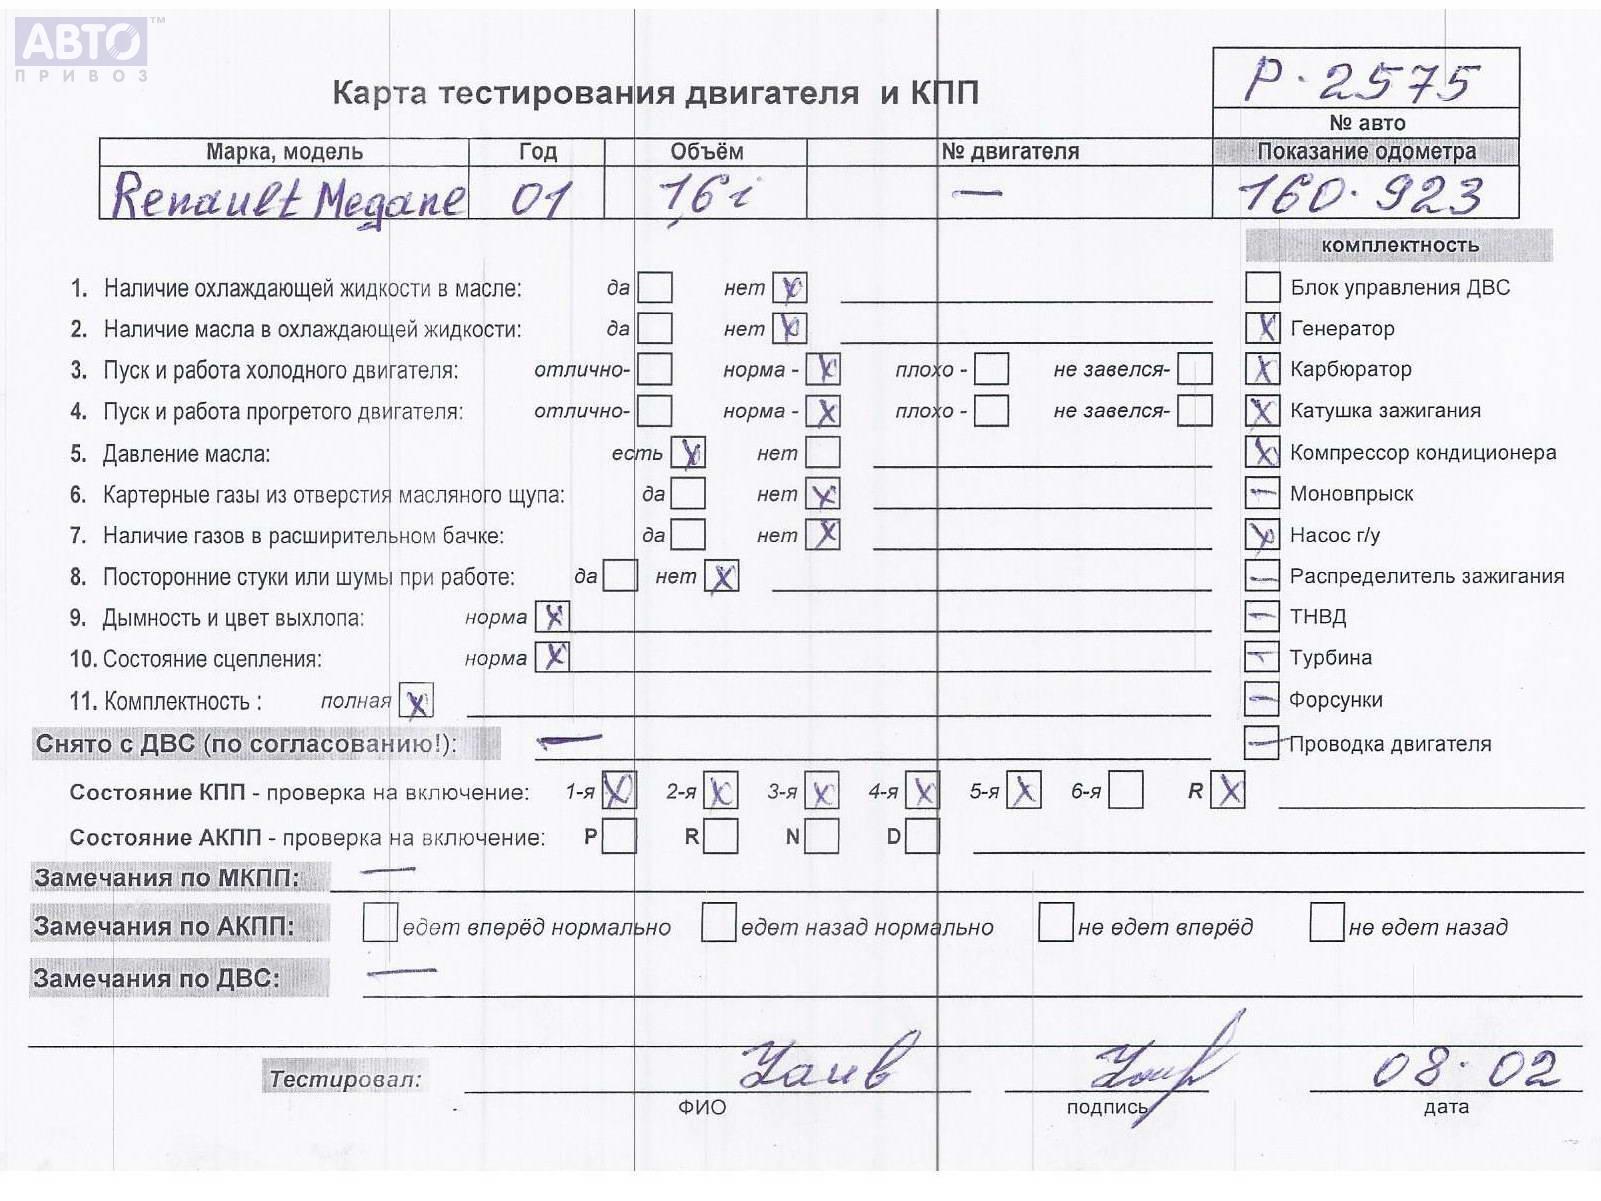 АВТО™
ПРИВОЗ
Карта тестирования двигателя и КПП
Р·2575
№ авто
Марка, модель Год Объём № двигателя Показание одометра
Renault Megane 01 1,6 i — 160·923
комплектность
1. Наличие охлаждающей жидкости в масле: да нет X
Блок управления ДВС
2. Наличие масла в охлаждающей жидкости: да нет X
X Генератор
3. Пуск и работа холодного двигателя: отлично- норма - X плохо - не завелся-
X Карбюратор
4. Пуск и работа прогретого двигателя: отлично- норма - X плохо - не завелся-
X Катушка зажигания
5. Давление масла: есть X нет
X Компрессор кондиционера
6. Картерные газы из отверстия масляного щупа: да нет X
— Моновпрыск
7. Наличие газов в расширительном бачке: да нет X
X Насос г/у
8. Посторонние стуки или шумы при работе: да нет X
— Распределитель зажигания
9. Дымность и цвет выхлопа: норма X
— ТНВД
10. Состояние сцепления: норма X
— Турбина
11. Комплектность : полная X
— Форсунки
Снято с ДВС (по согласованию!): —
— Проводка двигателя
Состояние КПП - проверка на включение: 1-я X 2-я X 3-я X 4-я X 5-я X 6-я R X
Состояние АКПП - проверка на включение: P R N D
Замечания по МКПП: —
Замечания по АКПП: едет вперёд нормально едет назад нормально не едет вперёд не едет назад
Замечания по ДВС: —
Тестировал: 08·02
ФИО подпись дата